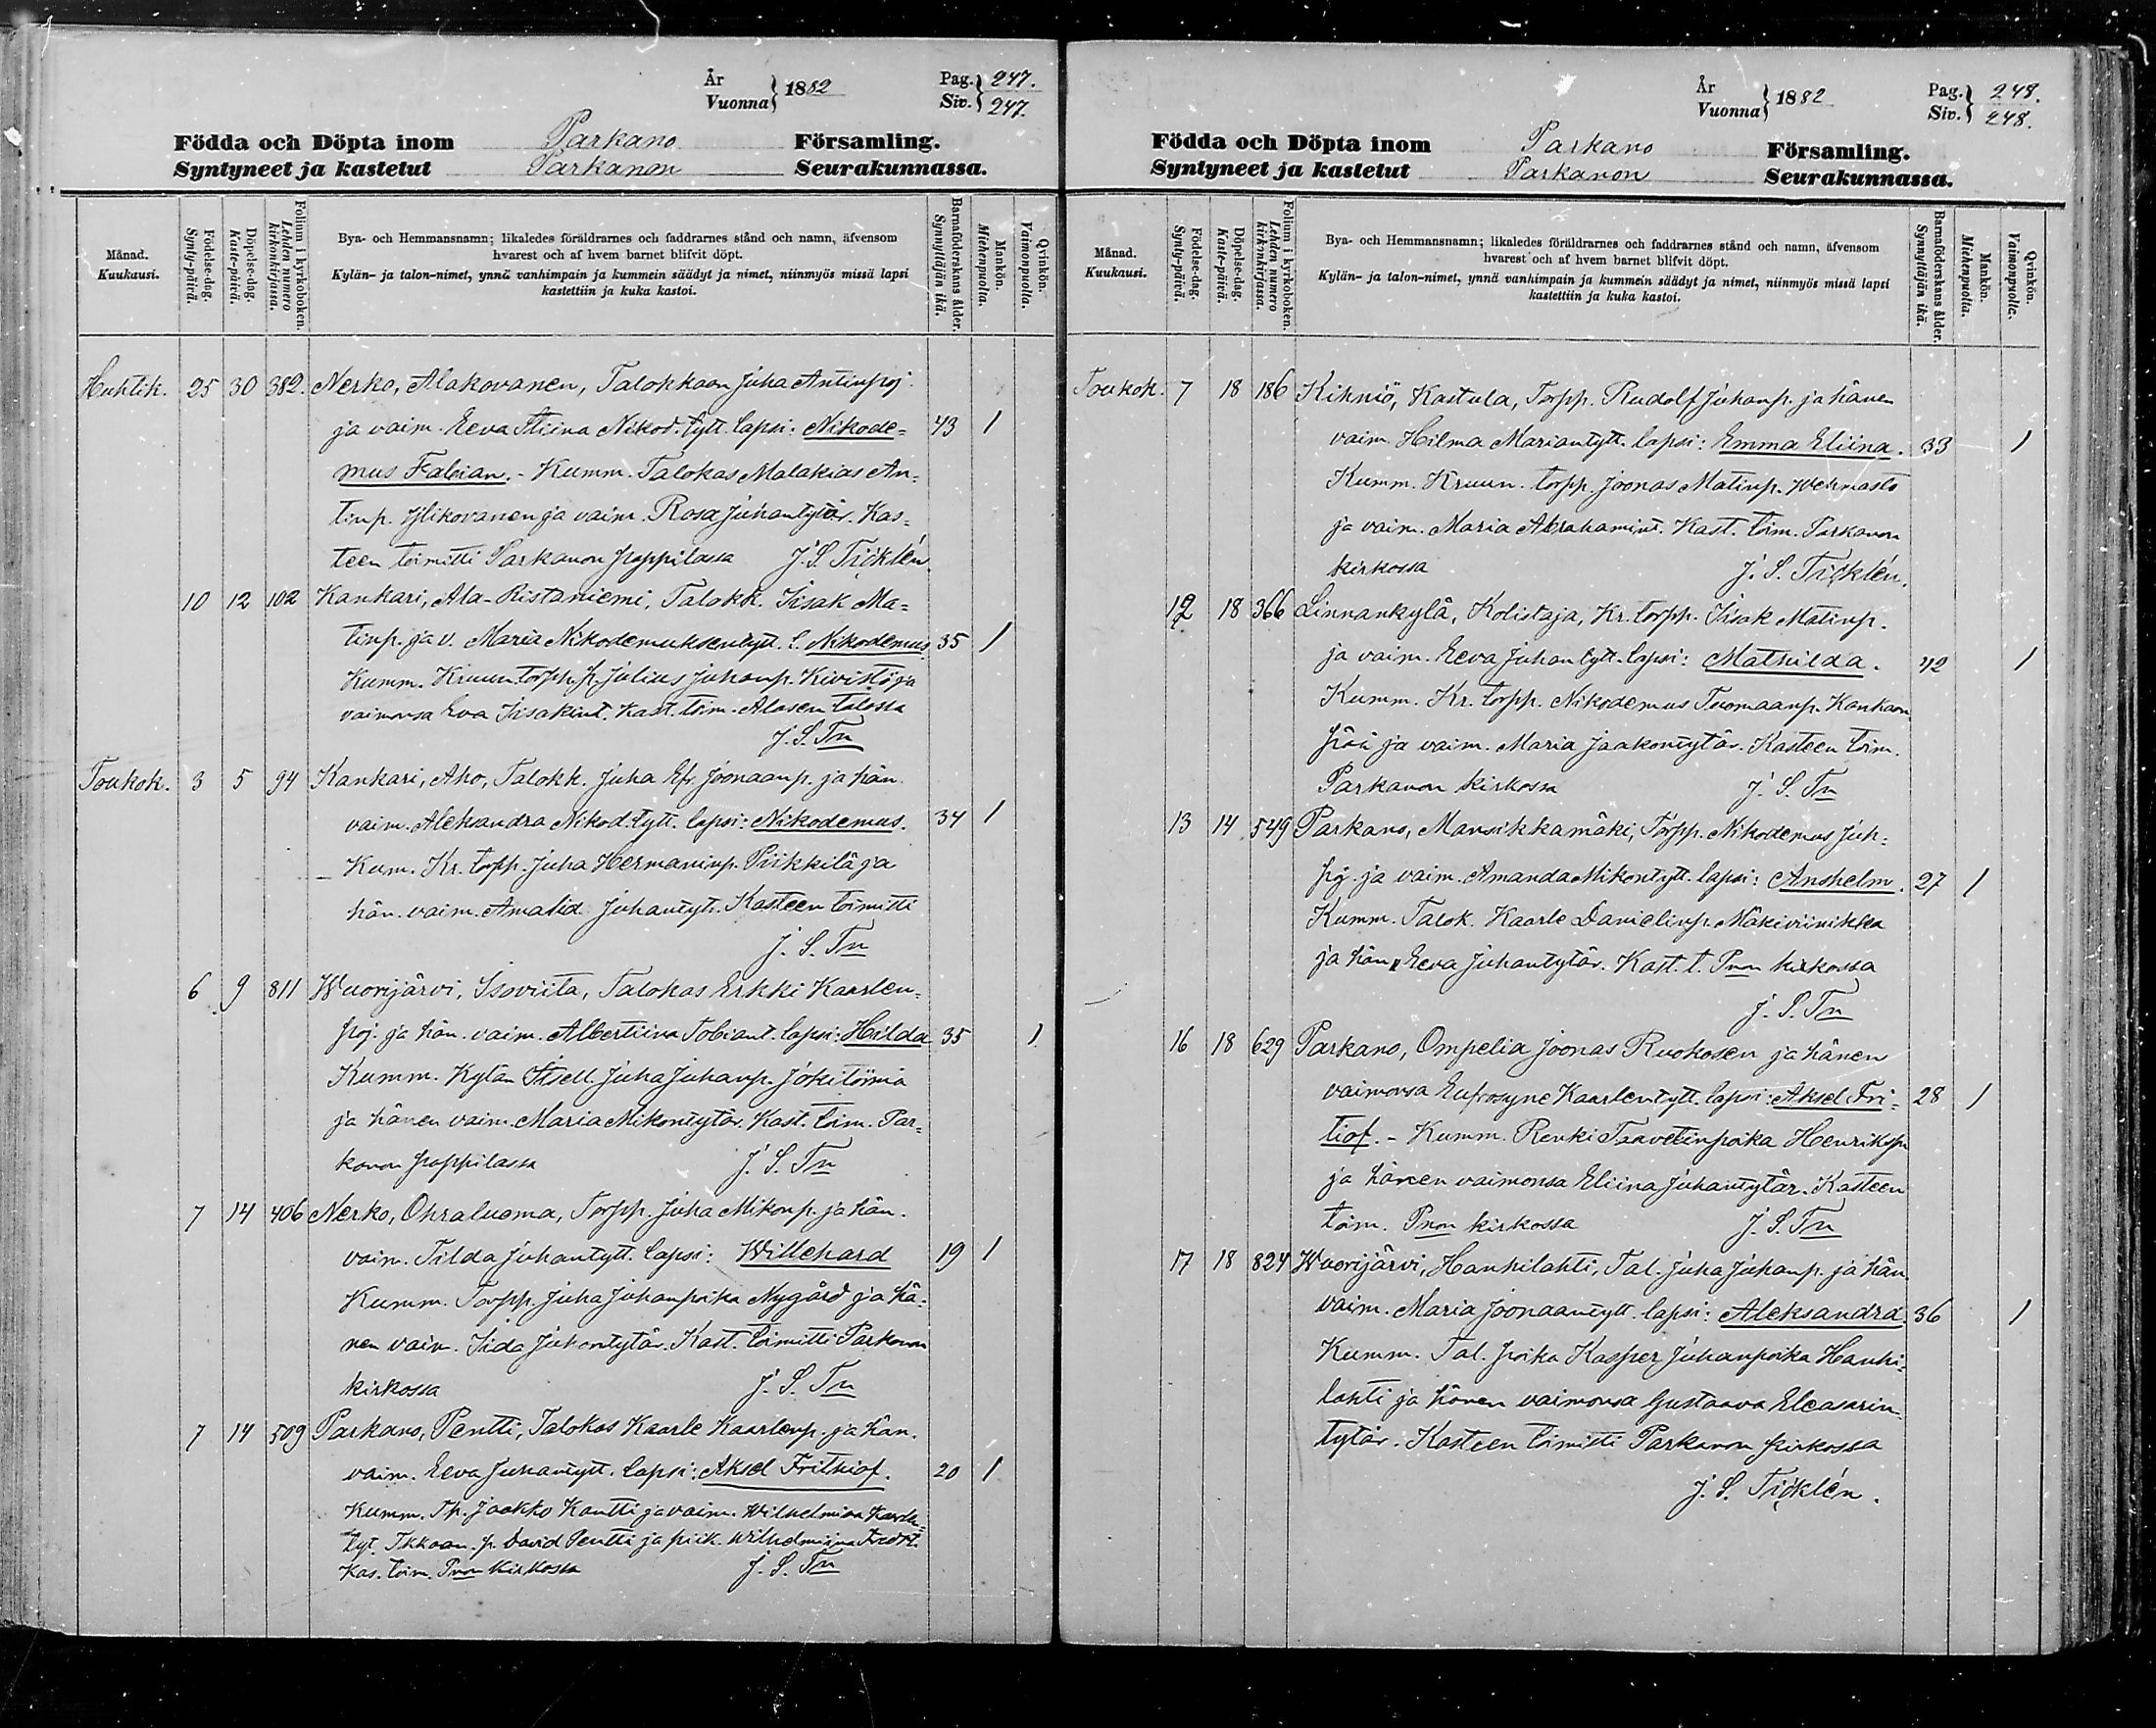 År
Vuonna } 1882
Pag.
Siv. } 247.
247.
Födda och Döpta inom Parkano Församling.
Syntyneet ja kastetut Parkanon Seurakunnassa.
Månad.
Kuukausi.
Födelse-dag.
Synty-päivä.
Döpelse-dag.
Kaste-päivä.
Folium i kyrkoboken.
Lehden numero
kirkonkirjassa.
Bya- och Hemmansnamn; likaledes föräldrarnes och faddrarnes stånd och namn, äfvensom
hvarest och af hvem barnet blifvit döpt.
Kylän- ja talon-nimet, ynnä vanhimpain ja kummein säädyt ja nimet, niinmyös missä lapsi
kastettiin ja kuka kastoi.
Barnaföderskans ålder.
Synnyttäjän ikä.
Mankön.
Miehenpuolta.
Qvinkön.
Vaimonpuolta.
Huhtik. 25 30 382. Nerko, Alakovanen, Talokkaan Juha Antinpoj.
ja vaim. Eeva Stiina Nikod. tytt. lapsi: Nikode= 43 1
mus Fabian. - Kumm. Talokas Malakias An=
tinp. Ylikovanen ja vaim. Rosa Juhantytär. Kas=
teen toimitti Parkanon pappilassa J. S. Ticklén
10 12 102 Kankari, Ala-Ristaniemi, Talokk. Iisak Ma=
tinp. ja v. Maria Nikodemuksentytt. l. Nikodemus 35 1
Kumm. Kruun. torpp. p. Julius Juhanp. Kivistö ja
vaimonsa Eva Iisakint. Kast. toim. Alasen talossa
J. S. Tn
Toukok. 3 5 94 Kankari, Aho, Talokk. Juha Efr. Joonaanp. ja hän.
vaim. Aleksandra Nikod. tytt. lapsi: Nikodemus. 34 1
Kum. Kr. torpp. Juha Hermaninp. Piikkilä ja
hän. vaim. Amalid. Juhantyt. Kasteen toimitti
J. S. Tn
6 9 811 Wuorijärvi, Isoviita, Talokas Erkki Kaarlen=
poj. ja hän. vaim. Albertiina Tobiant. lapsi: Hilda 35 1
Kumm. Kylän Itsell. Juha Juhanp. Jokitörmä
ja hänen vaim. Maria Mikontytär. Kast. toim. Par=
kanon pappilassa J. S. Tn
7 14 406 Nerko, Ohraluoma, Torpp. Juha Mikonp. ja hän.
vaim. Tilda Juhantytt. lapsi: Willehard 19 1
Kumm. Torpp. Juha Juhanpoika Nygård ja hä=
nen vaim. Iida Juhontytär. Kast. toimitti Parkanon
kirkossa J. S. Tn
7 14 509 Parkano, Pentti, Talokas Kaarle Kaarlenp. ja hän.
vaim. Eeva Juhantytt. lapsi: Aksel Frithiof. 20 1
Kumm. Th. Jaakko Kantti ja vaim. Wilhelmina Kaarlen=
tyt. Tkkaan. p. David Pentti ja piik. Wilhelmiina
Kas. toim. Pnon kirkossa J. S. Tn
År
Vuonna } 1882
Pag.
Siv. } 248.
248.
Födda och Döpta inom Parkano Församling.
Syntyneet ja kastetut Parkanon Seurakunnassa.
Månad.
Kuukausi.
Födelse-dag.
Synty-päivä.
Döpelse-dag.
Kaste-päivä.
Folium i kyrkoboken.
Lehden numero
kirkonkirjassa.
Bya- och Hemmansnamn; likaledes föräldrarnes och faddrarnes stånd och namn, äfvensom
hvarest och af hvem barnet blifvit döpt.
Kylän- ja talon-nimet, ynnä vanhimpain ja kummein säädyt ja nimet, niinmyös missä lapsi
kastettiin ja kuka kastoi.
Barnaföderskans ålder.
Synnyttäjän ikä.
Mankön.
Miehenpuolta.
Qvinkön.
Vaimonpuolta.
Toukok. 7 18 186 Kihniö, Kastula, Torpp. Rudolf Juhanp. ja hänen
vaim. Hilma Mariantytt. lapsi: Emma Eliina. 33 1
Kumm. Kruun. torpp. Joonas Matinp. Wehmasto
ja vaim. Maria Abrahamint. Kast. toim. Parkanon
kirkossa J. S. Ticklén.
12 18 366 Linnankylä, Kolistaja, Kr. torpp. Iisak Matinp.
ja vaim. Eeva Juhantytt. lapsi: Mathilda. 42 1
Kumm. Kr. torpp. Nikodemus Tuomaanp. Kankaan
pää ja vaim. Maria Jaakontytär. Kasteen toim.
Parkanon kirkossa J. S. Tn
13 14 549 Parkano, Mansikkamäki, Torpp. Nikodemus Juh=
poj. ja vaim. Amanda Mikontytt. lapsi: Anshelm. 27 1
Kumm. Talok. Kaarle Danielinp. Mäkiviinikka
ja hän Eeva Juhantytär. Kast. t. Pnon kirkossa
J. S. Tn
16 18 629 Parkano, Ompelia Joonas Ruokosen ja hänen
vaimonsa Eufrosyne Kaarlentytt. lapsi: Aksel Fri= 28 1
tiof. - Kumm. Renki Taavetinpoika Henriksp.
ja hänen vaimonsa Eliina Juhantytär. Kasteen
toim. Pnon kirkossa J. S. Tn
17 18 824 Wuorijärvi, Hanhilahti, Tal. Juha Juhanp. ja hän
vaim. Maria Joonaantytt. lapsi: Aleksandra. 36 1
Kumm. Tal. poika Kasper Juhanpoika Hanhi=
lahti ja hänen vaimonsa Gustaava Eleasarin
tytär. Kasteen toimitti Parkanon kirkossa
J. S. Ticklén.